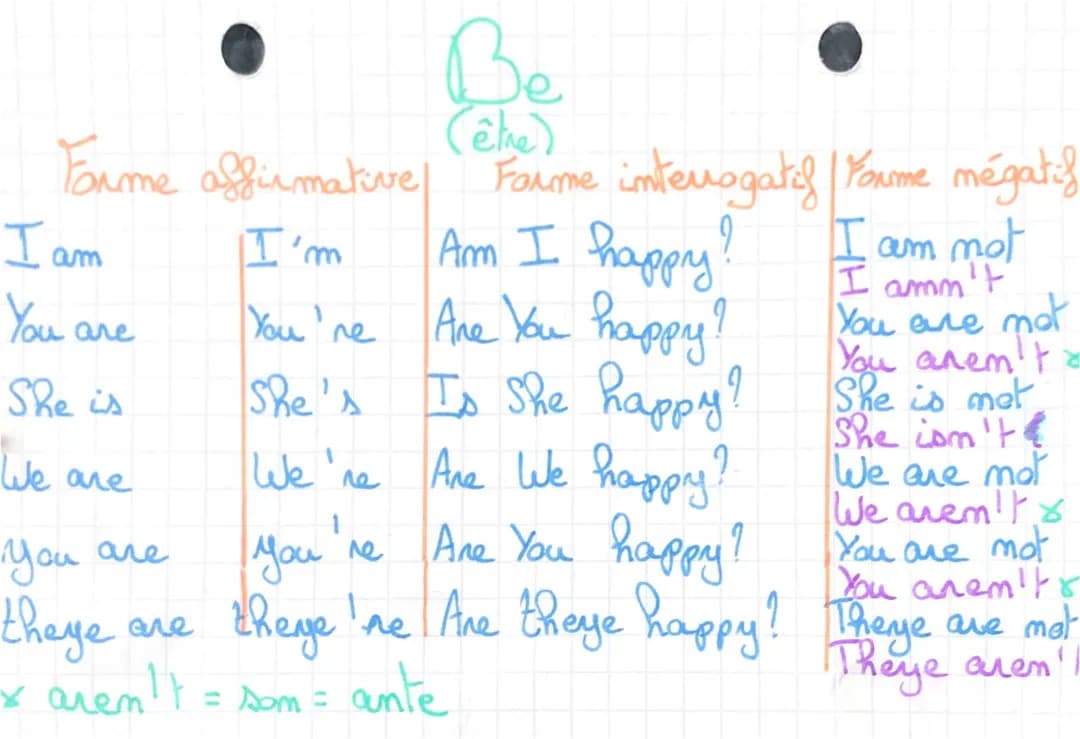 Be
(être)
Forme affirmative Forme interrogatif Forme négatif
I am I'm Am I happy? I am not
I amn't
You are You're Are You happy? You are not
You aren't *
She is She's Is She happy? She is not
She isn't
We are We're Are We happy? We are not
We aren't *
you are you're Are You happy? You are not
You aren't *
theye are theye're Are theye happy? Theye are not
Theye aren't
* aren't = son = ante